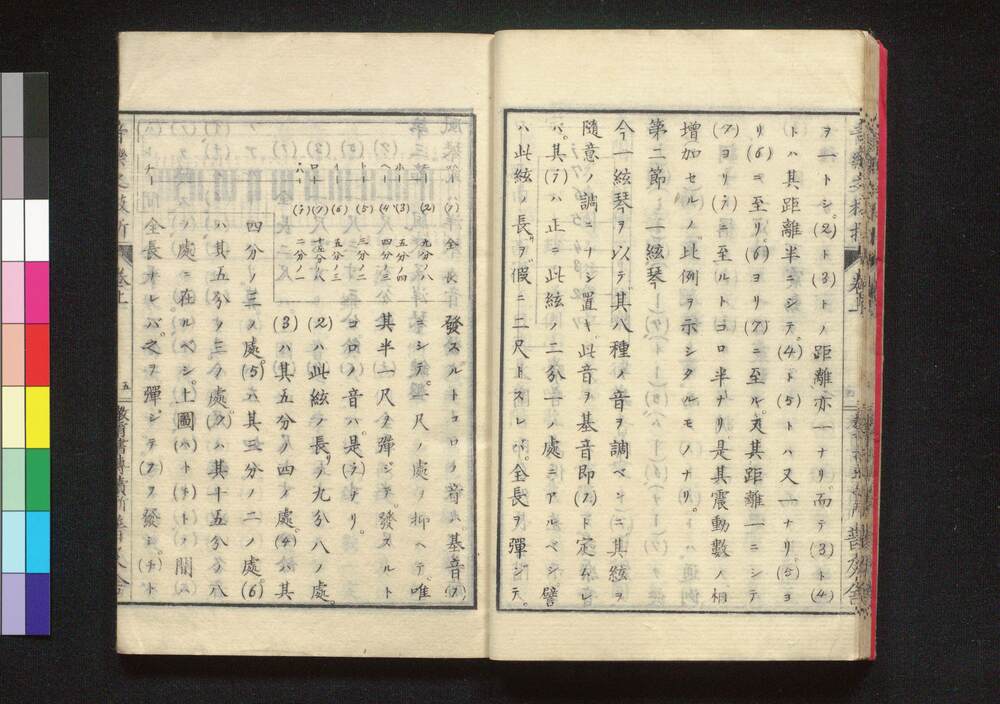 ヲ一トシ。(2)ト(3)トノ距離亦一ナリ。而テ(3)ト(4)
トハ其距離半ニシテ。(4)ト(5)トハ又一ナリ。(5)ヨ
リ(6)ニ至リ。(6)ヨリ(7)ニ至ル。夾其距離一ニシテ
(7)ヨリ(ラ)ニ至ルトコロ半ナリ是其震動數ノ相
增加セルノ比例ヲ示シタルモノナリ。
第二節 一絃琴
今一絃琴ヲ以テ其八種ノ音ヲ調ベンニ其絃ヲ
隨意ノ調ニナシ置キ。此音ヲ基音即(ス)ト定ムレ
バ。其(ラ)ハ正ニ此絃ノ二分一ノ處ニアルベシ譬
ハ此絃ノ長ヲ假ニ二尺トスレバ。全長ヲ彈ジテ。
發スルトコロノ音ハ。基音ヲ
ニシテ。一尺ノ處ノ抑ヘテ唯
其半一尺ヲ彈ジテ。發スルト
コロノ音ハ。是(ラ)ナリ。
(2)ハ此絃ノ長ノ九分八ノ處。
(3)ハ其五分ノ四ノ處。(4)ハ其
四分ノ三ノ處。(5)ハ其三分ノ二ノ處(6)
ハ其五分ノ三ノ處(7)ハ其十五分ノ八
ノ處ニ在ルベシ。上圖
全長ナレバ。之ヲ彈ジテ(ス)ヲ發シ。
全長
(2) 九分ノ八
(3) 五分ノ四
(4) 四分ノ三
(5) 三分ノ二
(6) 五分ノ三
(7) 十五分ノ八
(ラ) 二分ノ一
卷上
五